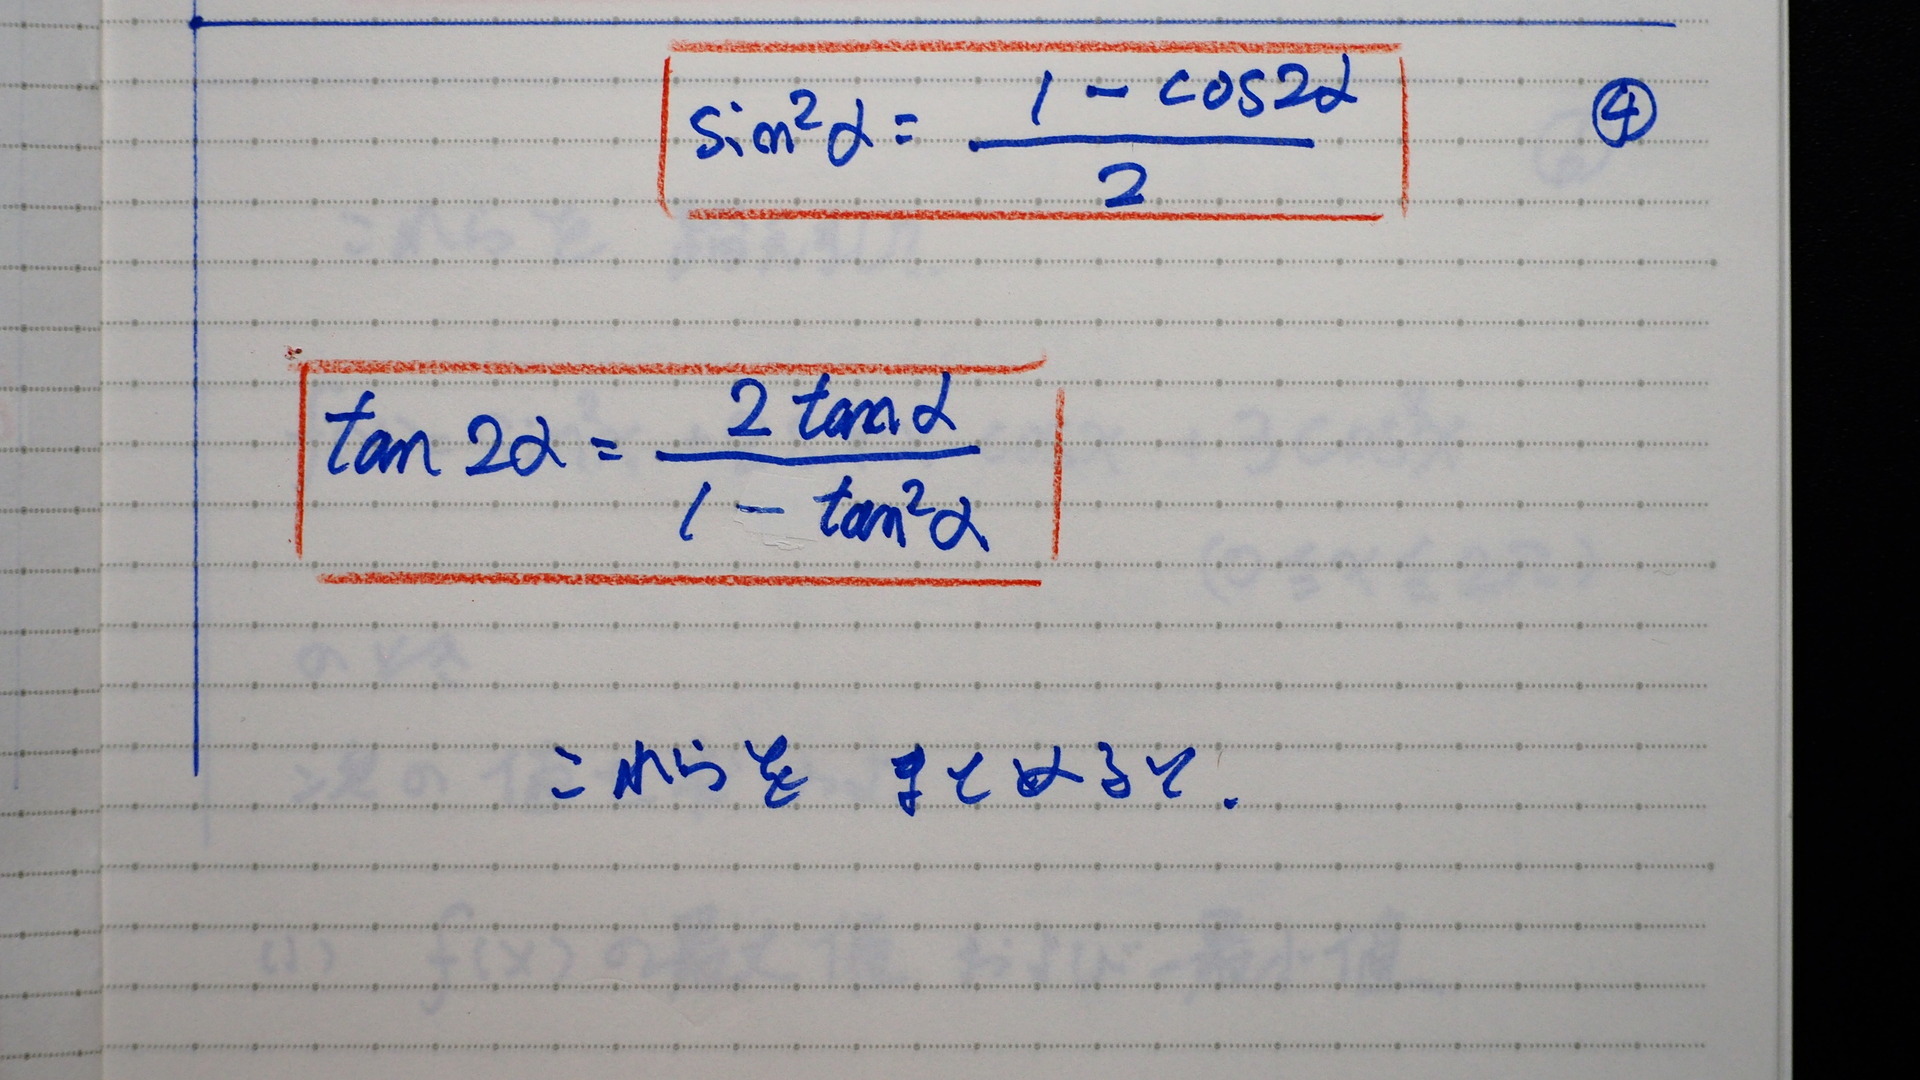 sin²α = (1 - cos2α)/2 ④
tan 2α = (2 tan α)/(1 - tan²α)
これらを まとめると.